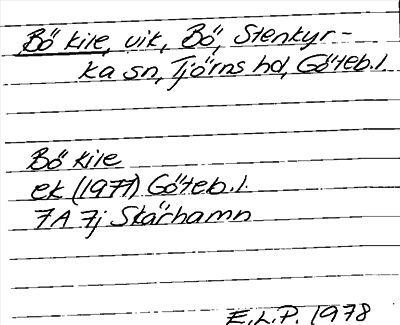 Bö kile, vik, Bö, Stenkyr-
ka sn, Tjörns hd, Göteb. l.
Bö kile
ek (1977) Göteb. l.
7A 7j Skärhamn
E.L.P. 1978